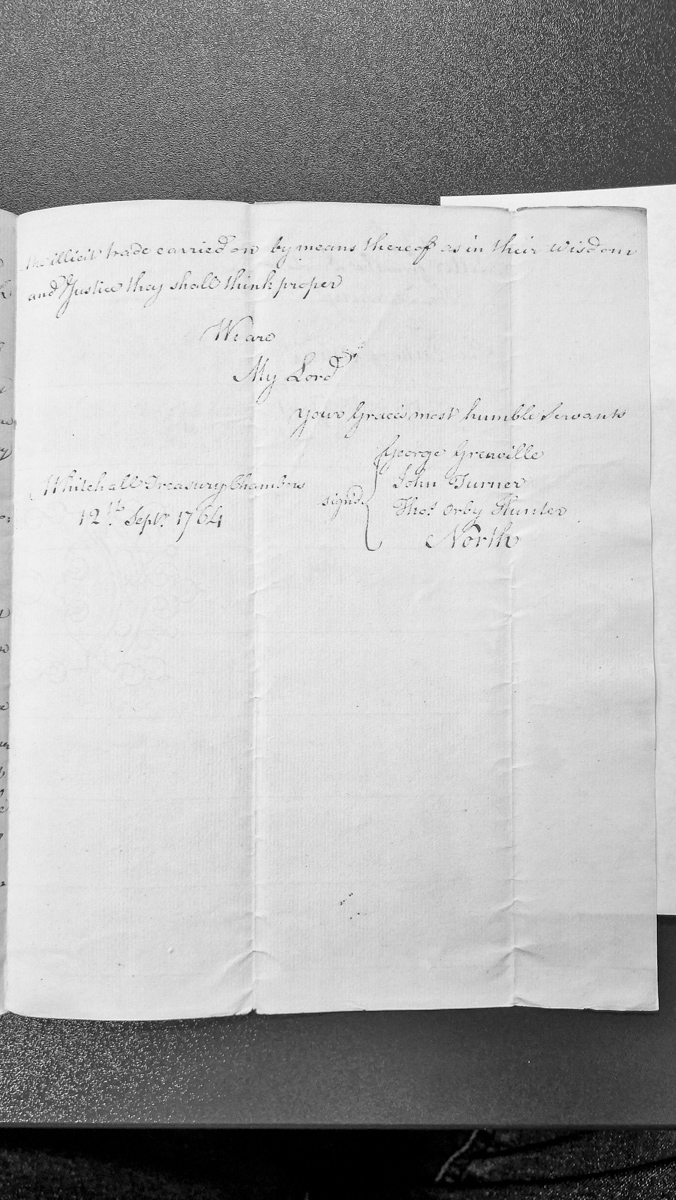 the illicit trade carried on by means thereof as in their wisdom
and Justice they shall think proper
We are
My Lord
Your Graces most humble Servants
George Greaville
John Turner
Whitehall Treasury Chambers
signd
Thos. Orby Hunter
12th Septr. 1764
North